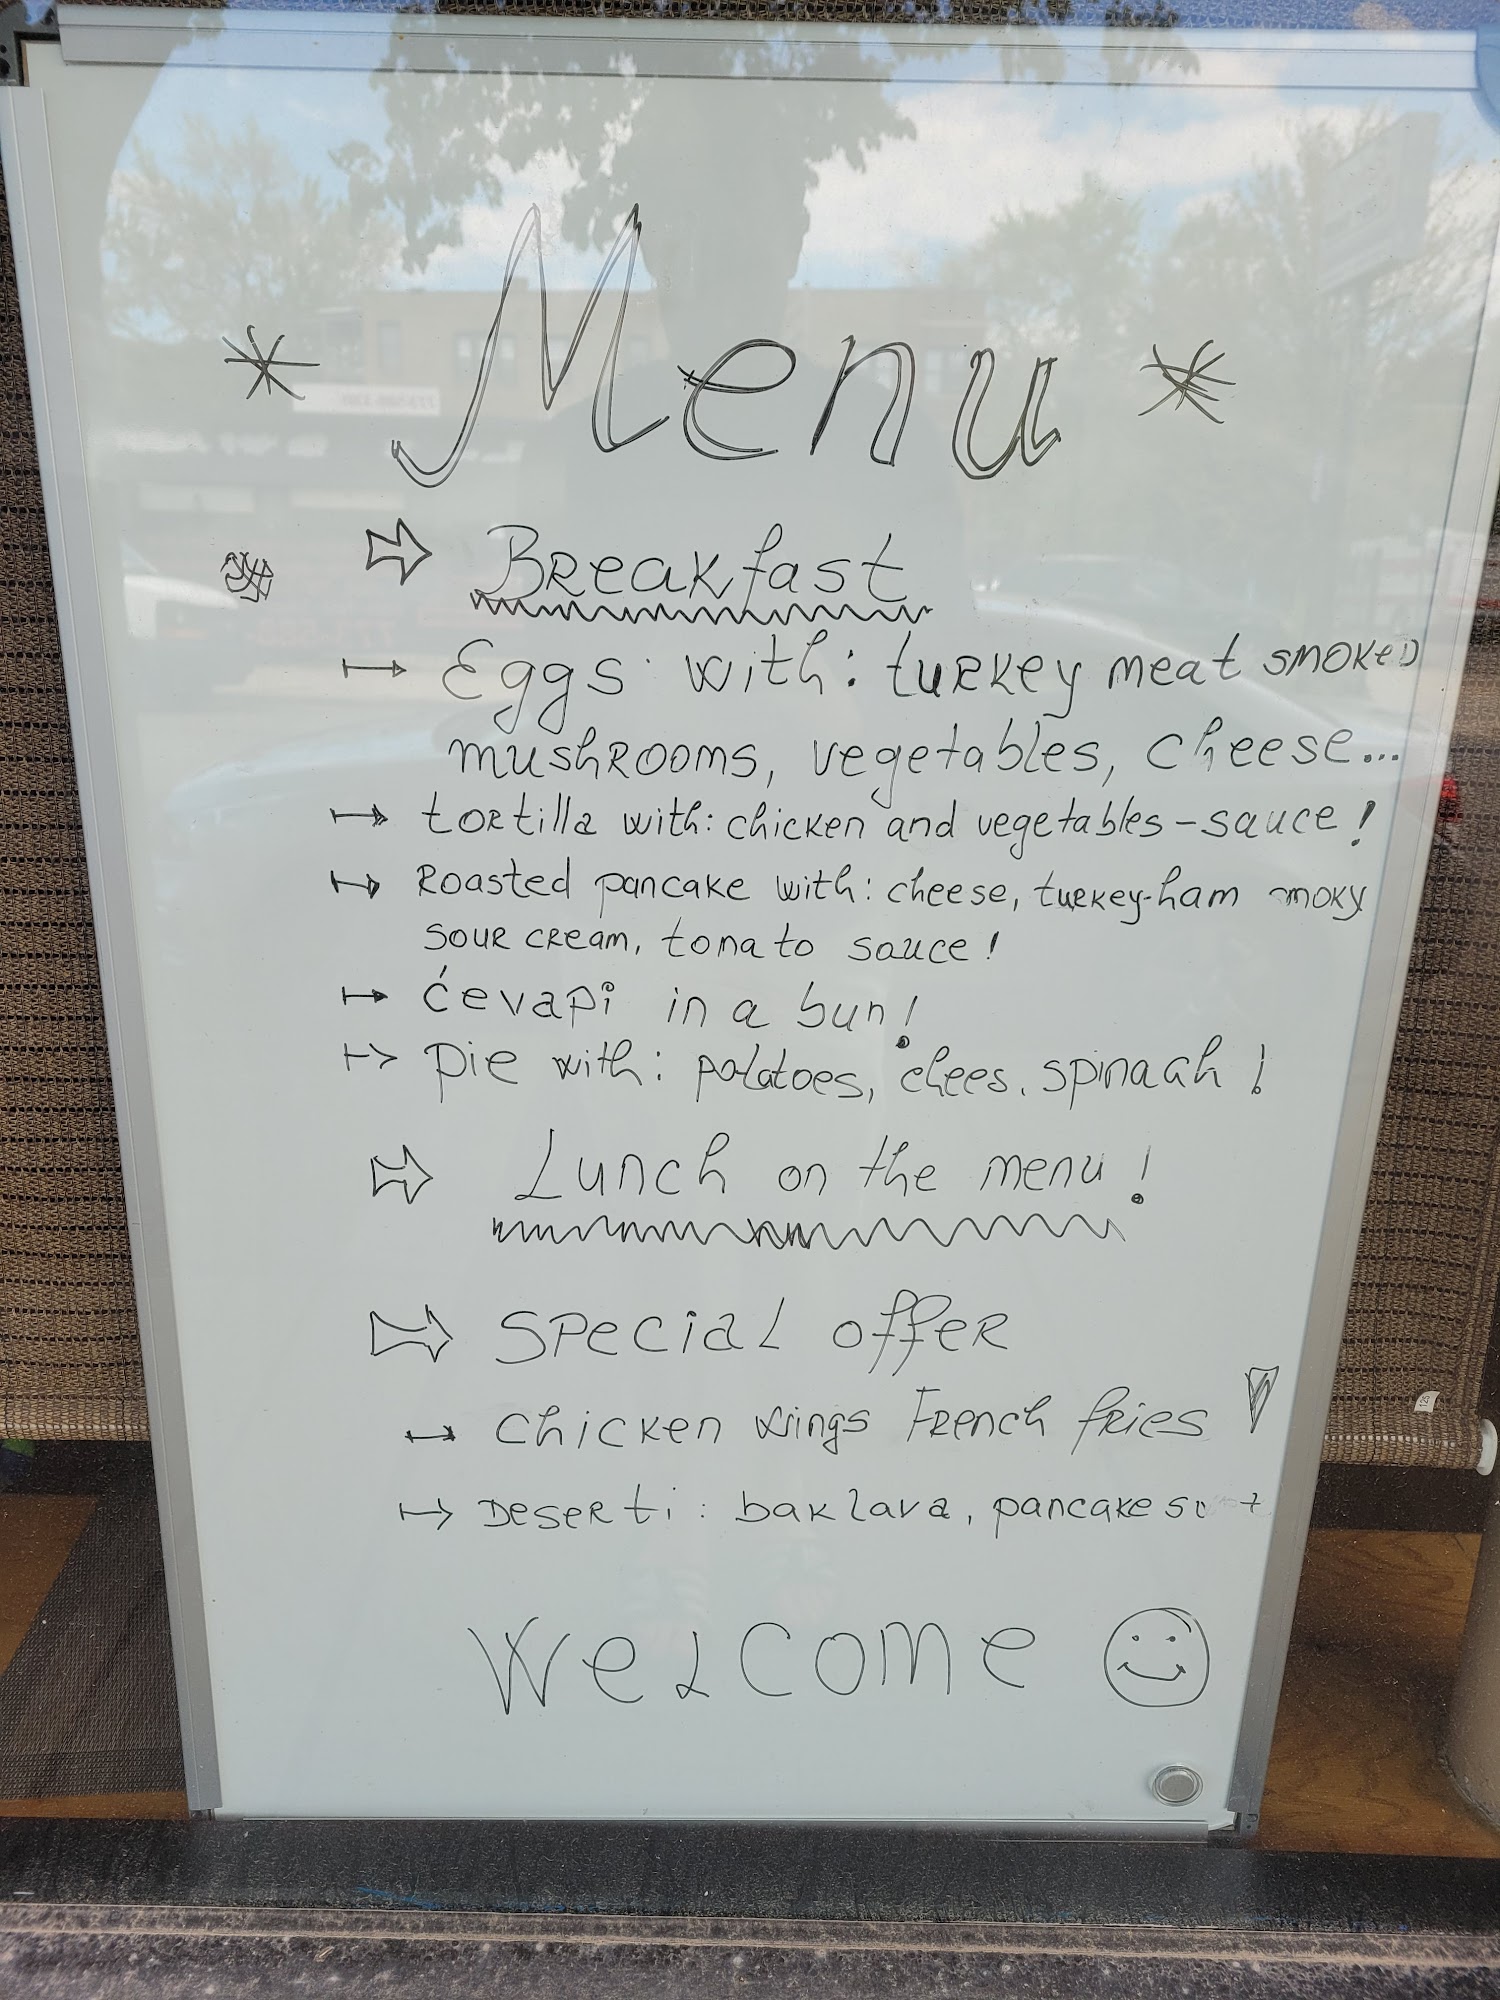 * Menu *
Breakfast
Eggs with: turkey meat smoked
mushrooms, vegetables, cheese...
tortilla with: chicken and vegetables - sauce!
Roasted pancake with: cheese, turkey-ham smoky
sour cream, tonato sauce!
ćevapi in a bun!
pie with: potatoes, chees, spinach!
Lunch on the menu!
Special offer
chicken wings French fries !
Deserti: baklava, pancake
Welcome
125